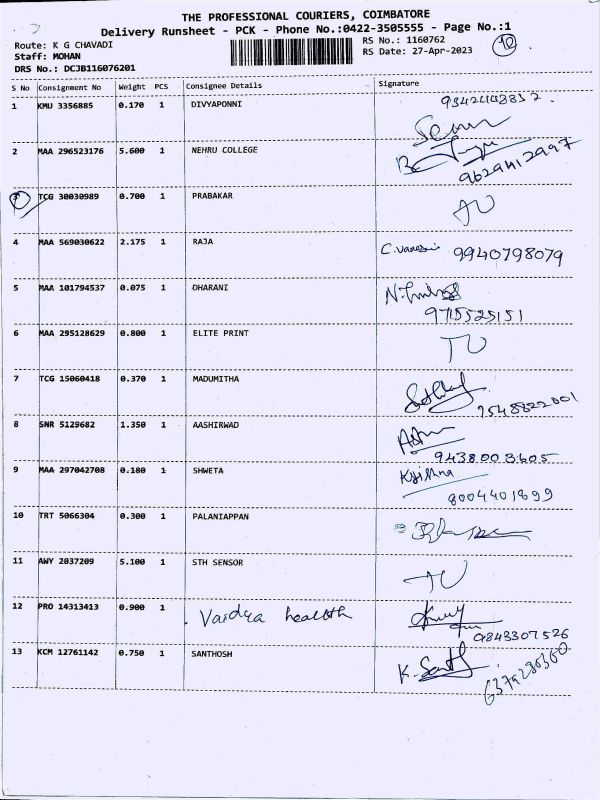 THE PROFESSIONAL COURIERS, COIMBATORE
Delivery Runsheet - PCK - Phone No.:0422-3505555 - Page No.:1
Route: K G CHAVADI
RS No.: 1160762
Staff: MOHAN
RS Date: 27-Apr-2023
DRS No.: DCJB116076201
S No Consignment No Weight PCS Consignee Details Signature
1 KMU 3356885 0.170 1 DIVYAPONNI
2 MAA 296523176 5.600 1 NEHRU COLLEGE
9629412997
3 TCG 30030989 0.700 1 PRABAKAR
4 MAA 569030622 2.175 1 RAJA
9940798079
5 MAA 101794537 0.075 1 DHARANI
9715525151
6 MAA 295128629 0.800 1 ELITE PRINT
7 TCG 15060418 0.370 1 MADUMITHA
8 SNR 5129682 1.350 1 AASHIRWAD
9438003605
9 MAA 297042708 0.180 1 SHWETA Krishna
8004401899
10 TRT 5066304 0.300 1 PALANIAPPAN
11 AWY 2037209 5.100 1 STH SENSOR
12 PRO 14313413 0.900 1 Vaidya health
9843307526
13 KCM 12761142 0.750 1 SANTHOSH K. Santh
6379280360